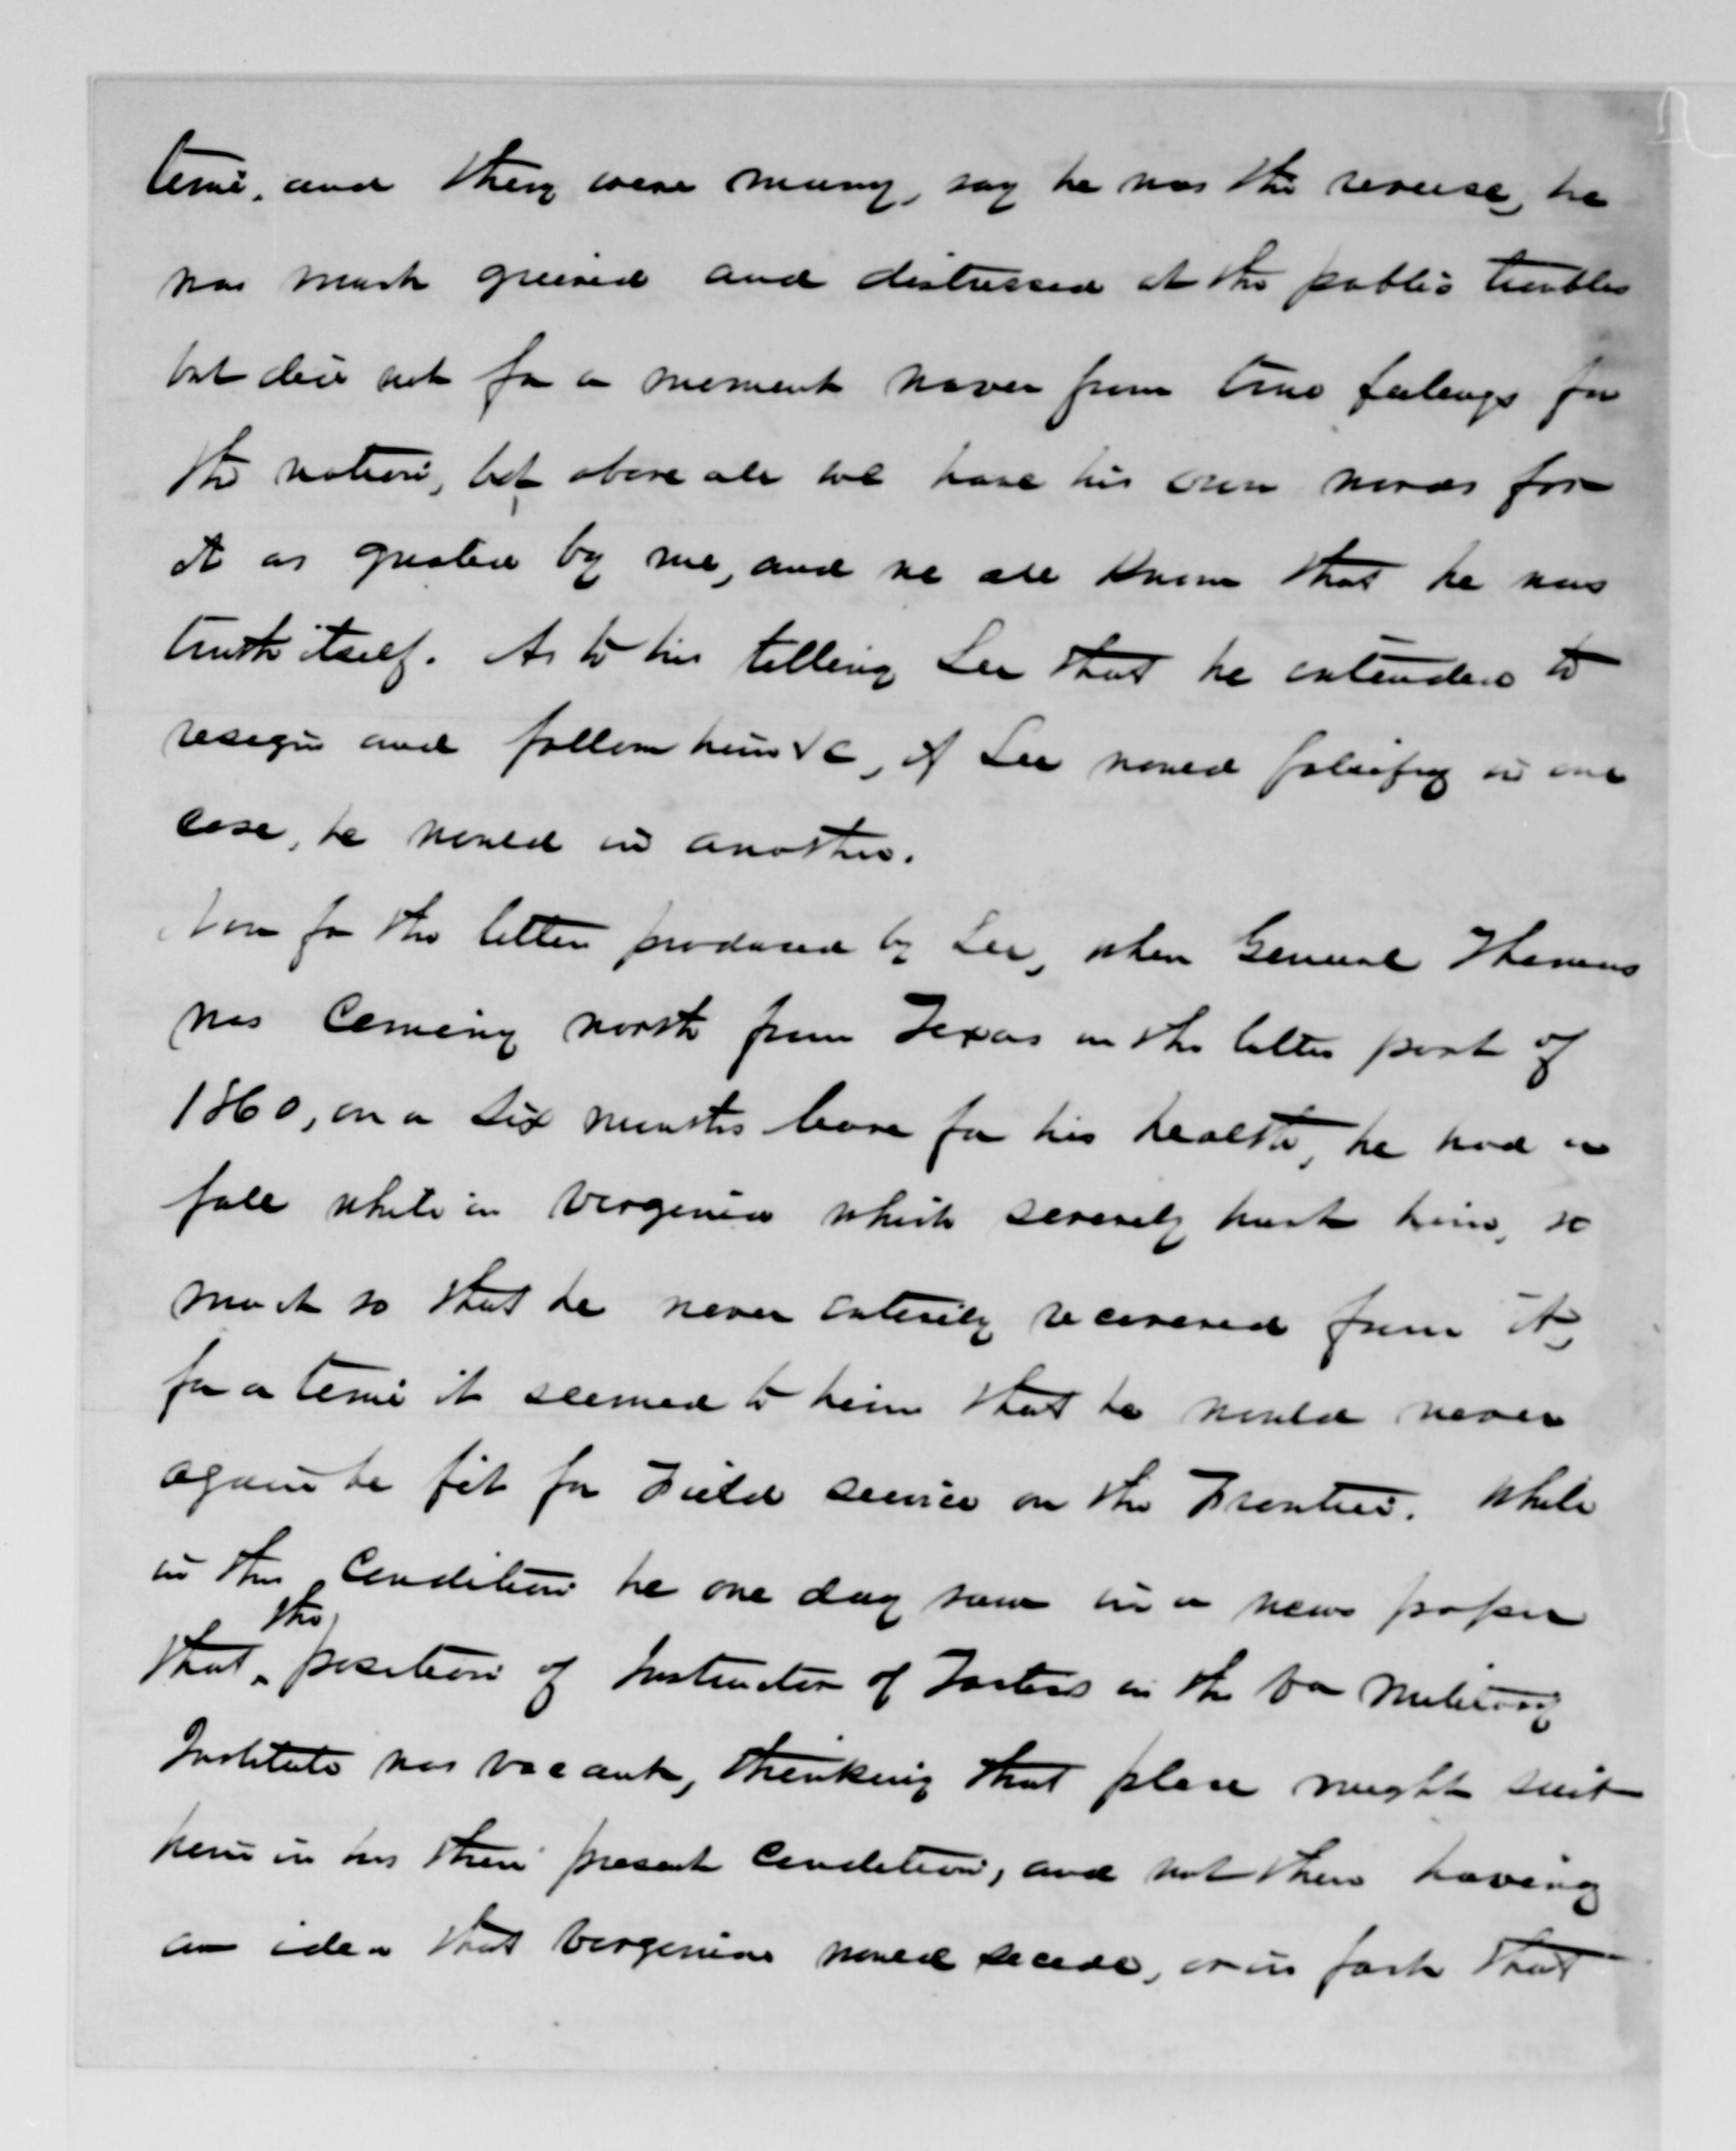 time, and they were many, say he was the reverse, he
was much grieved and distressed at the public troubles
but did not for a moment waver from true feelings for
the nation, but above all we have his own words for
it as quoted by me, and we all know that he was
truth itself. As to his telling Lee that he intended to
resign and follow him &c, if Lee would falsify in one
case, he would in another.
Now for the letter produced by Lee, when General Thomas
was coming north from Texas in the latter part of
1860, on a six months leave for his health, he had a
fall while in Virginia which severely hurt him, so
much so that he never entirely recovered from it,
for a time it seemed to him that he would never
again be fit for Field service on the Frontier. While
in this condition he one day saw in a news paper
that the position of Instructor of Tactics in the Va Military
Institute was vacant, thinking that place might suit
him in his then present condition, and not then having
an idea that Virginia would secede, or in fact that